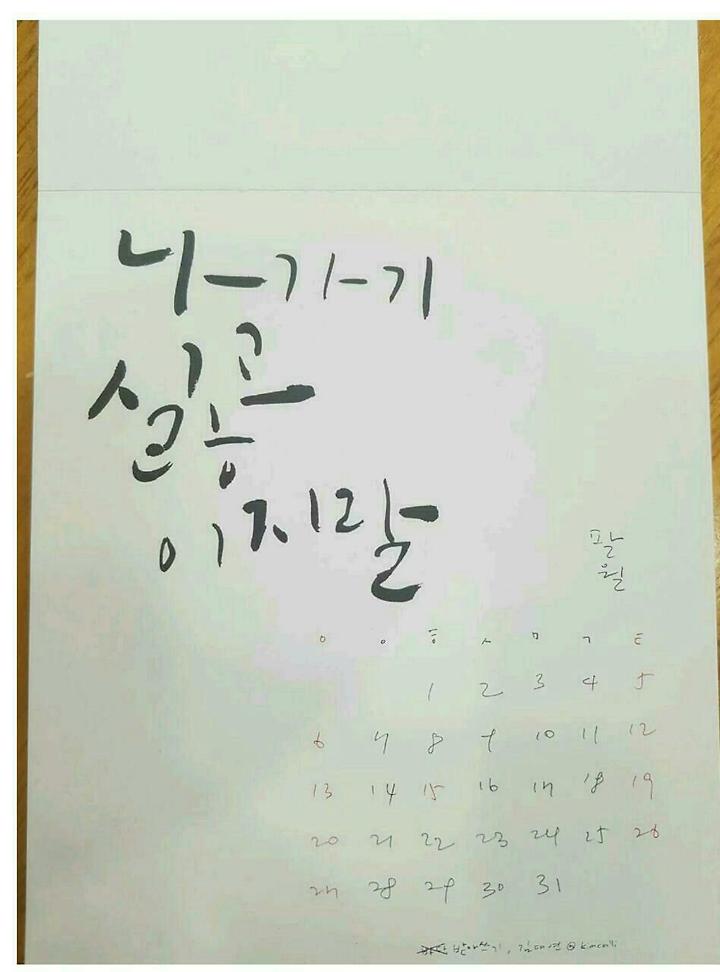 나가기
싫고
이지랄
팔
월
ㅇ ㅇ ㅎ ㅅ ㅁ ㄱ ㅌ
1 2 3 4 5
6 7 8 9 10 11 12
13 14 15 16 17 18 19
20 21 22 23 24 25 26
27 28 29 30 31
받아쓰기, 김대연